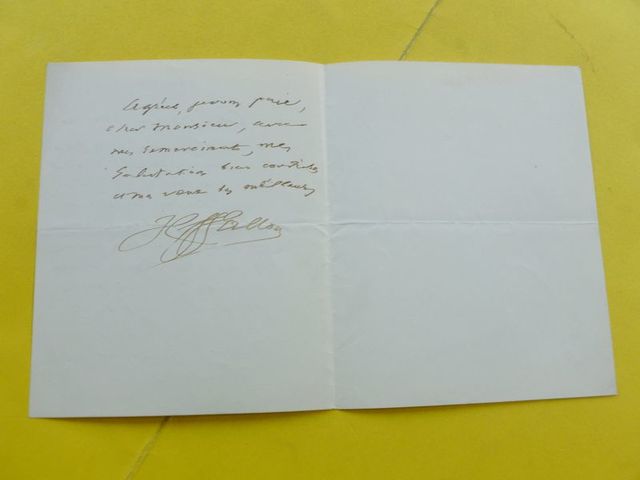 Agréez, je vous prie,
cher Monsieur, avec
mes remerciements, mes
Salutations bien cordiales
et ma vous les meilleurs